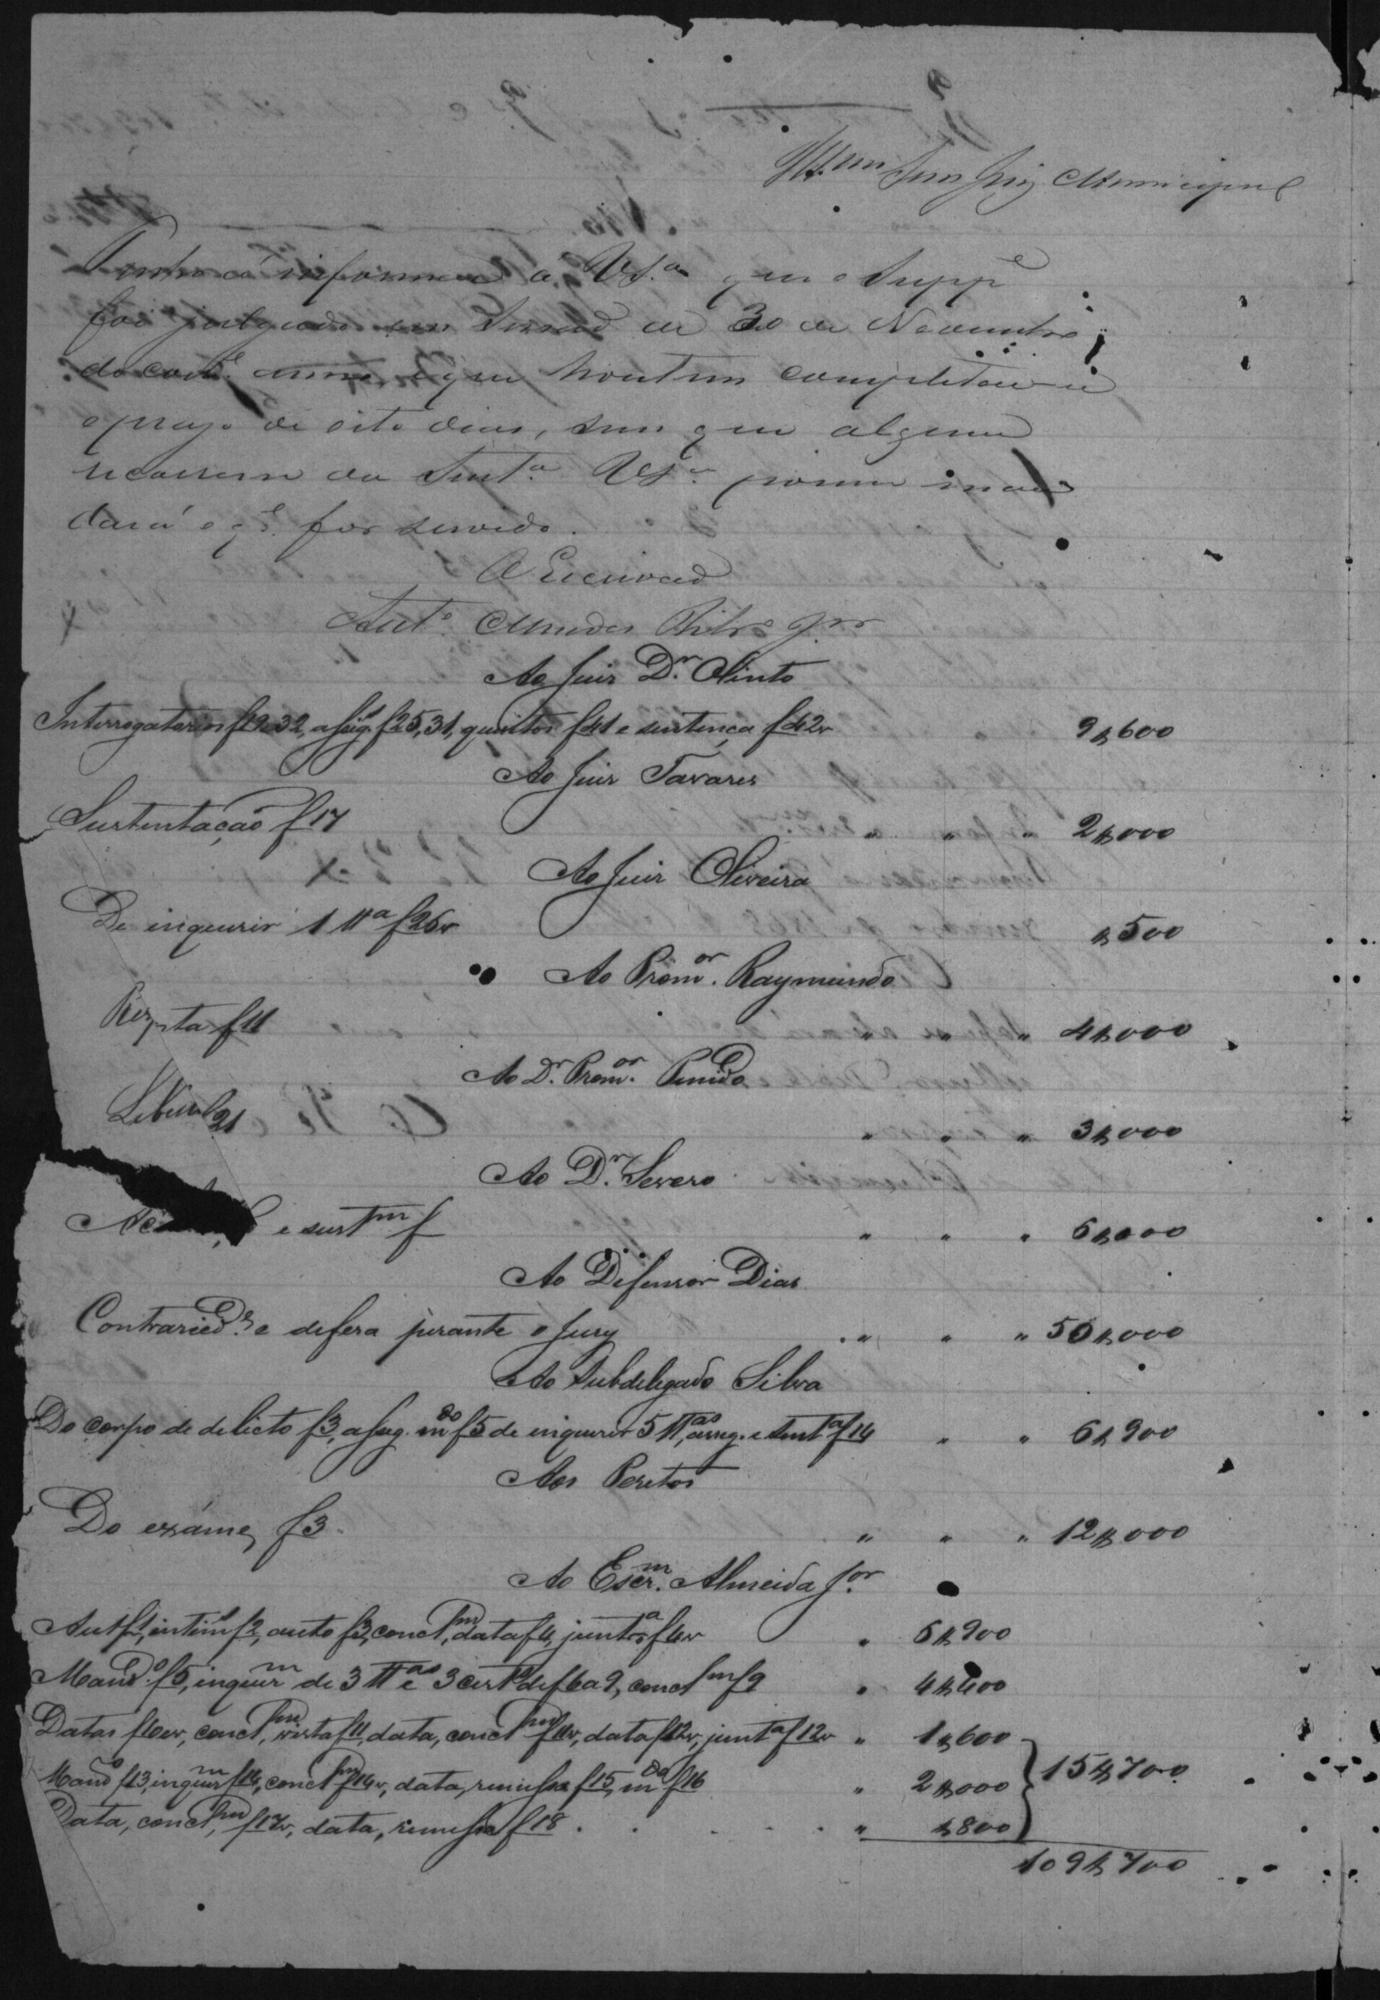 Illm Snr Juiz Municipal
Tenho á informar a V.S.a que o Supp.e
foi julgado em Sessaõ de 30 de Novembro
do corr.e anno, e que hontem completou-se
o praso de oito dias, sem que alguem
recorresse da Sent.a V.S.a porem man
dará o q.e for servido.
O Escrivaõ
Ant.o Mendes Ribr.o Jor
Ao Juiz Dr. Olinto
Interrogatorios f19 e 32, assig. f25, 31, quesitos f41 e sentença f42v 9$600
Ao Juiz Tavares
Sustentação f17 " " " 2$000
Ao Juiz Oliveira
De inquerir 1 ttª f26v $500
Ao Prom.or Raymundo
Resp.ta f11 " " " 4$000
Ao Dr. Prom.or Penido
Libello f21 " " " 3$000
Ao Dr. Severo
e sust.m f " " " 6$000
Ao Defensor Dias
Contraried.e e defesa perante o Jury " " " 50$000
Ao Subdelegado Silva
Do corpo de delicto f3, assig. m.do f5 de inquerir 5 tt.as, assig. e sent.a f14 " " 6$900
Aos Peritos
Do exáme, f3. " " " 12$000
Ao Escr.m Almeida J.or
Aut. f1, intim. f2, auto f3, concl.m, data f4, junt.a f4v " 6$900
Mand.o f5, inquir.m de 3 tt.as e 3 cert. de f6 a 9, concl.m f9 " 4$400
Datas f10v, concl.m, vista f11, data, concl.m f11v, data f12v, junt.a f12v " 1$600
Mand.o f13, inquir.m f14, concl.m f14v, data, remessa f15, m.do f16 " 2$000 } 15$700
Data, concl.m f17v, data, remessa f18 . . . . . " $800
109$700